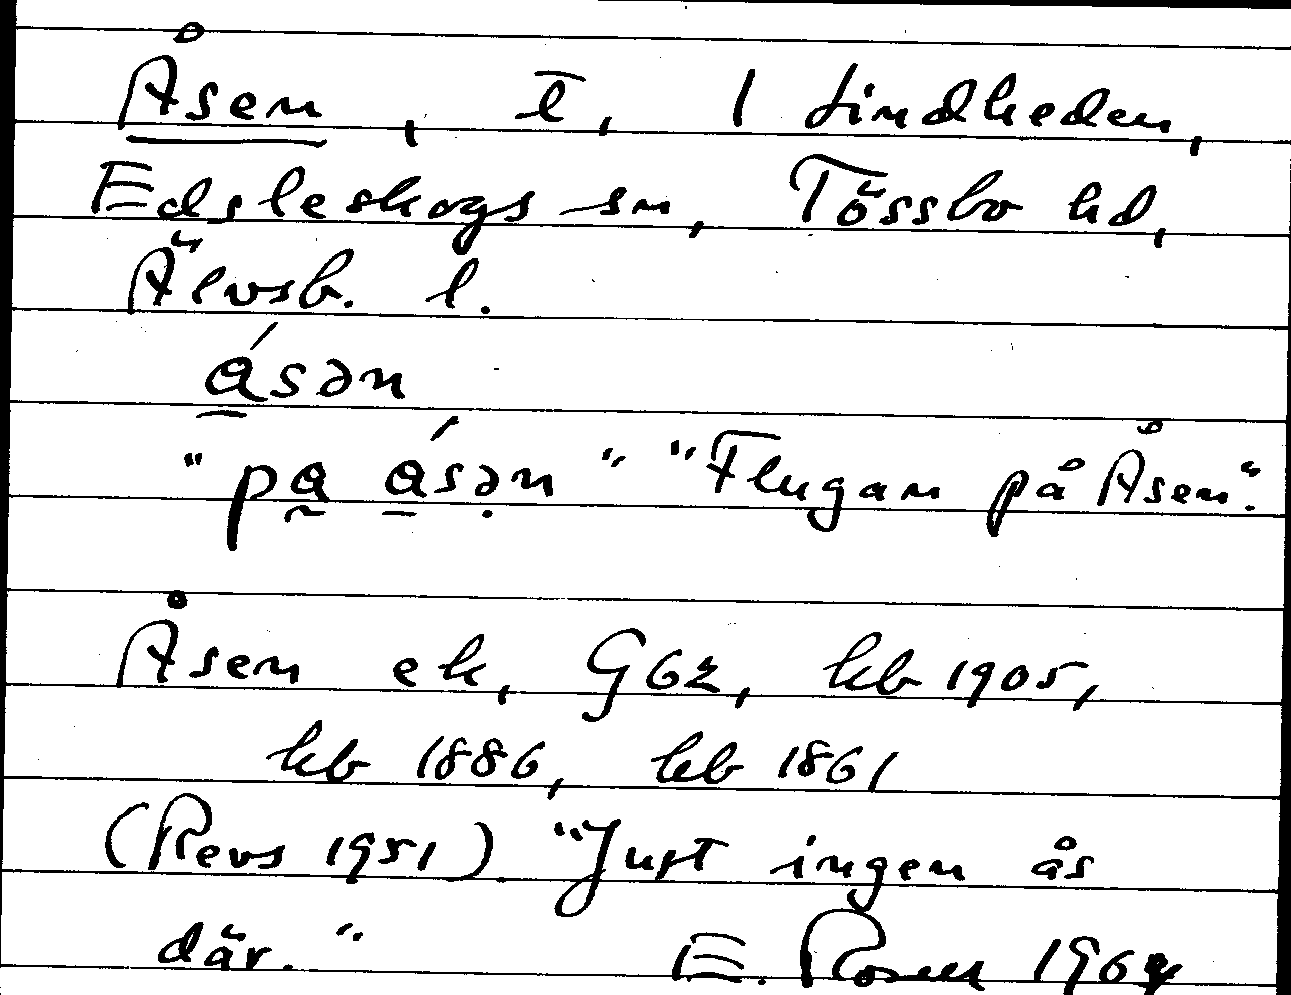 Åsen, ī, 1 Lindheden,
Edsleskogs sn, Tössbo hd,
Älvsb. l.
á̲sən
"pa̰ á̲sə̣n" "Flugan på Åsen".
Åsen ek, G62, kb 1905,
kb 1886, kb 1861
(Revs 1951) "Just ingen ås
där." E. Rosell 1964